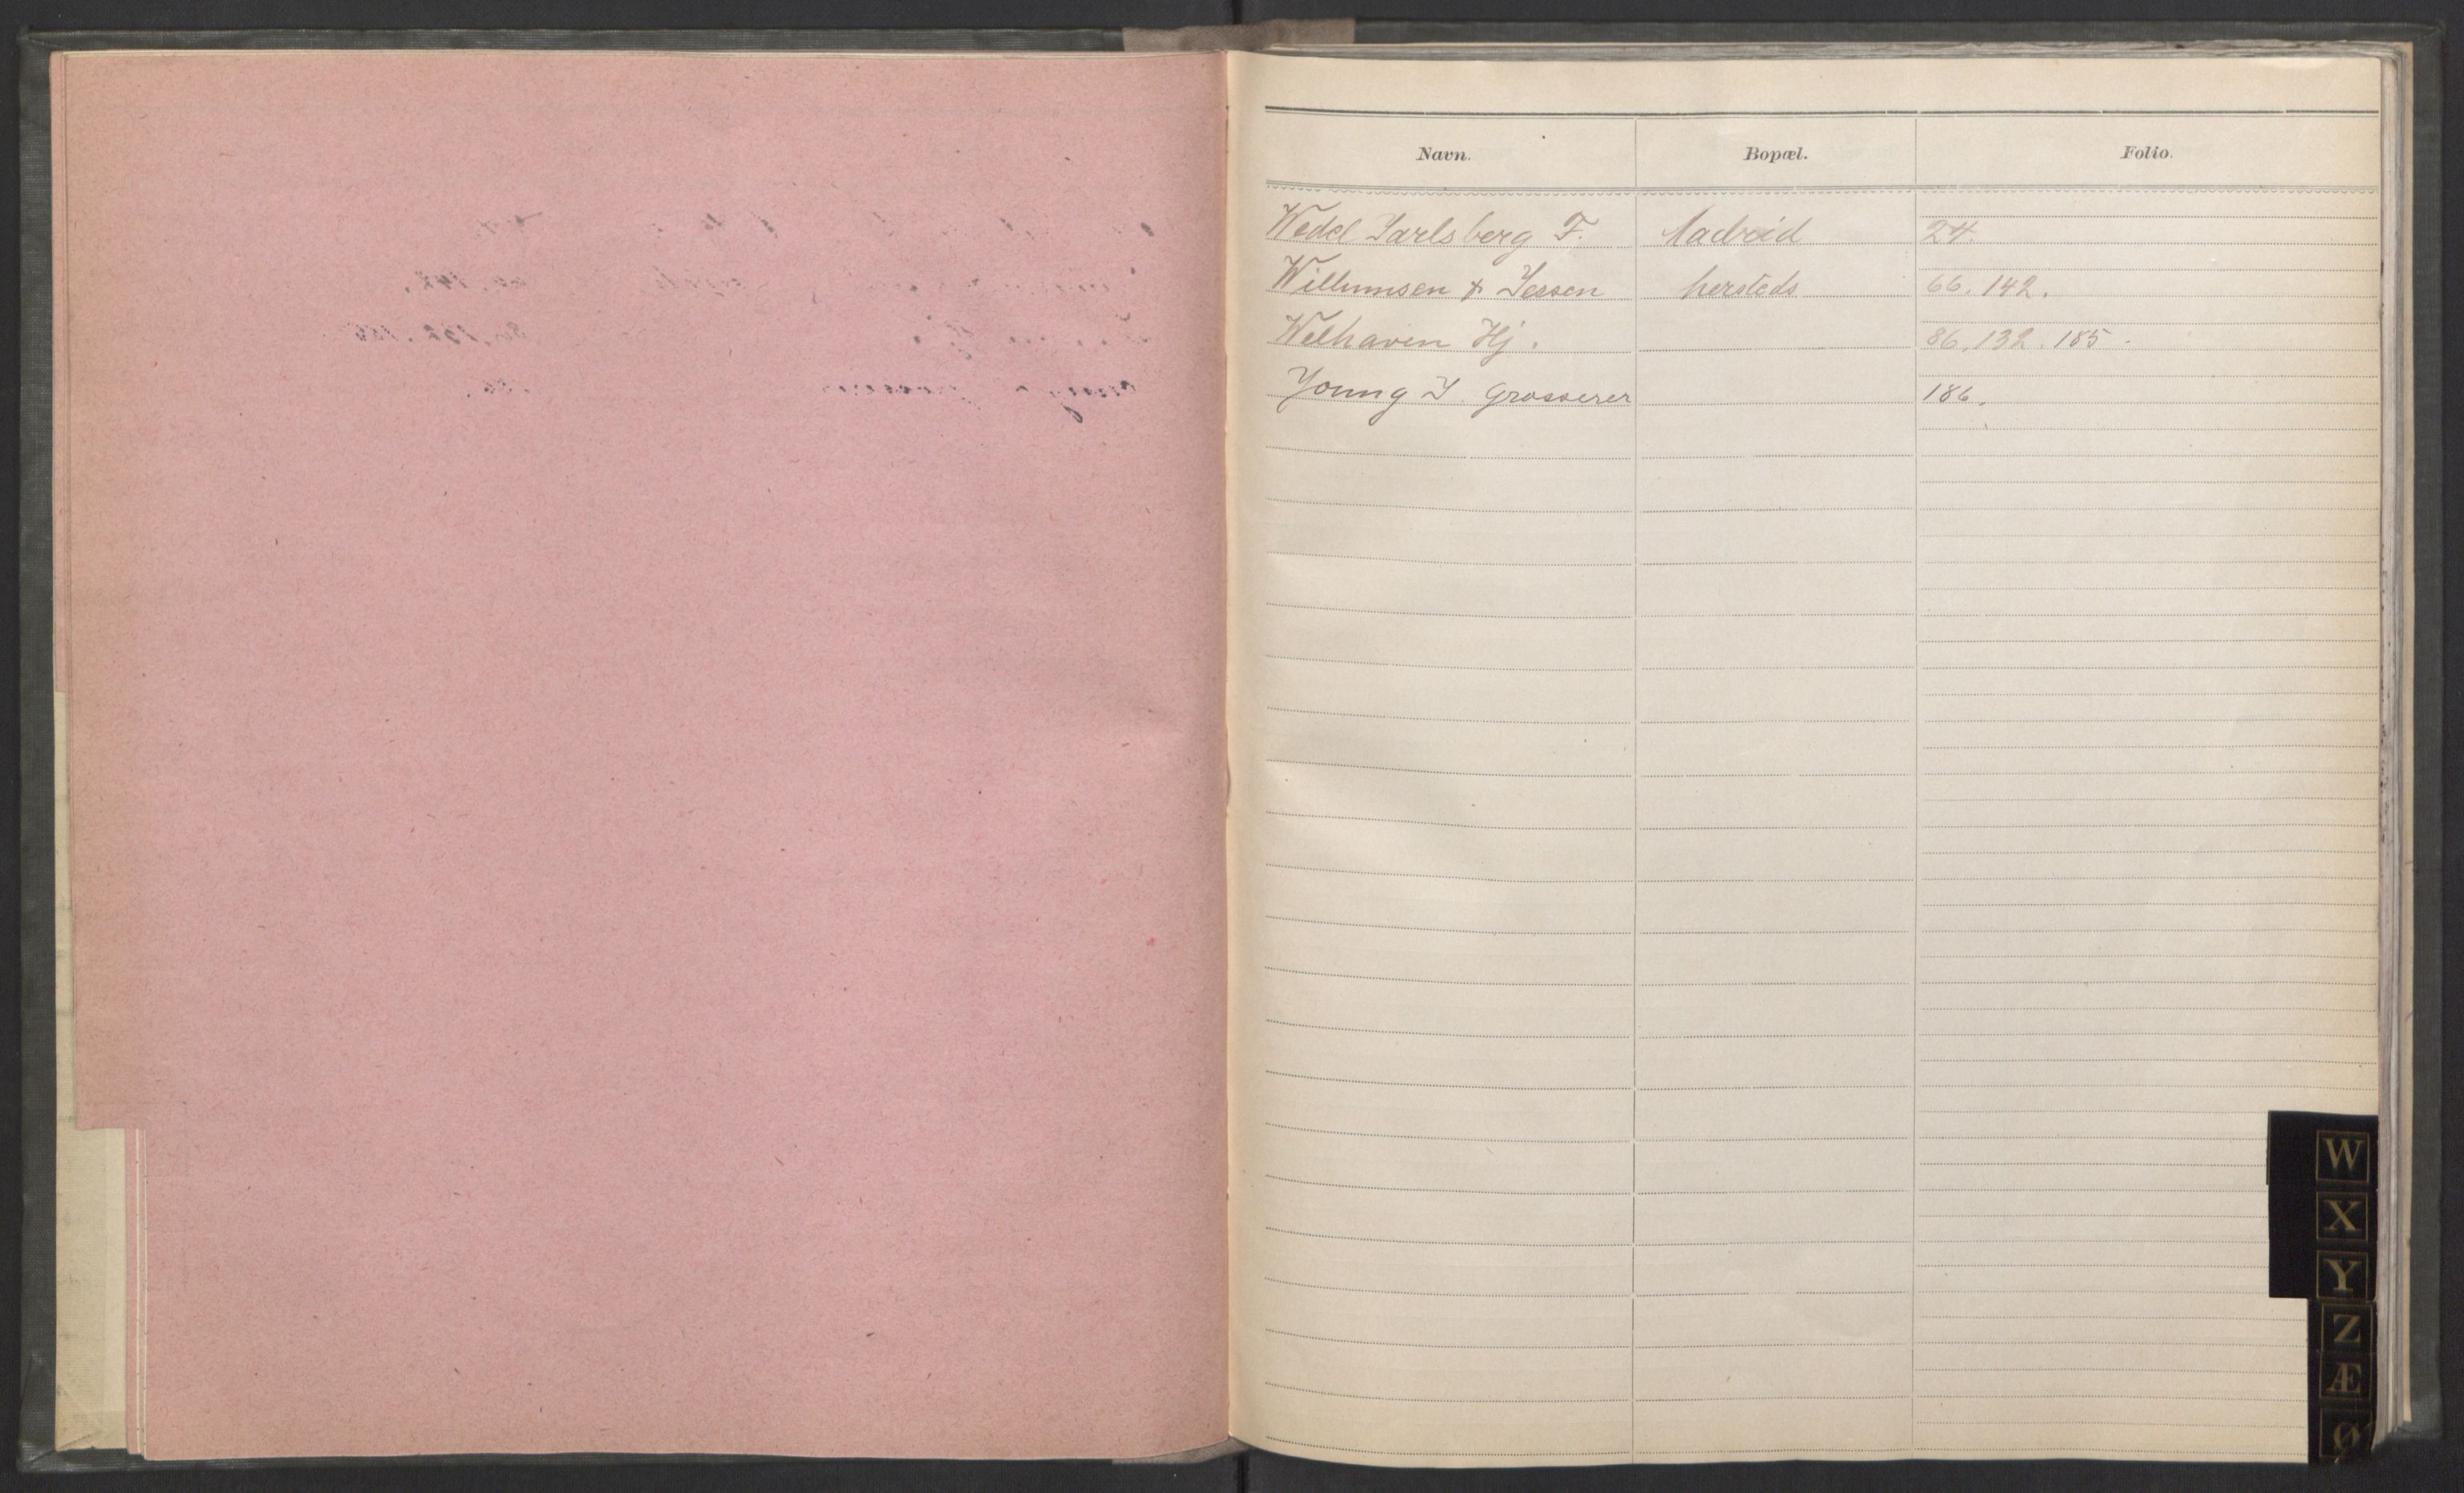 Navn. Bopæl. Folio.
Wedel Jarlsberg F. Madrid 24.
Willumsen & Jessen hersteds 66. 142.
Welhaven Hj. 86. 132. 185.
Young J. Grosserer 186.
W
X
Y
Z
Æ
Ø